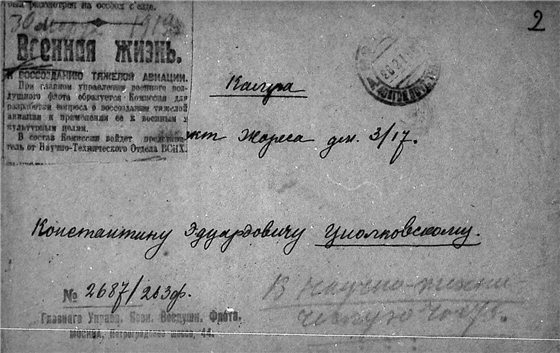 2
был рассмотрен на особом с'езде.
30 1919
Военная жизнь.
К ВОССОЗДАНИЮ ТЯЖЕЛОЙ АВИАЦИИ.
При главном управлении военного воз-
душного флота образуется Комиссия для
разработки вопроса о воссоздании тяжелой
авиации и применении ее к военным и
культурным целям.
В состав Комиссии войдет представи-
тель от Научно-Технического Отдела ВСНХ.
Калуга
Жореса дм. 3/17.
Константину Эдуардовичу Циолковскому.
№ 2687/263ф.
Главного Управ. Возд. Флота.
Москва, Петроградское шоссе, 44.
В Научно-техни
ческую